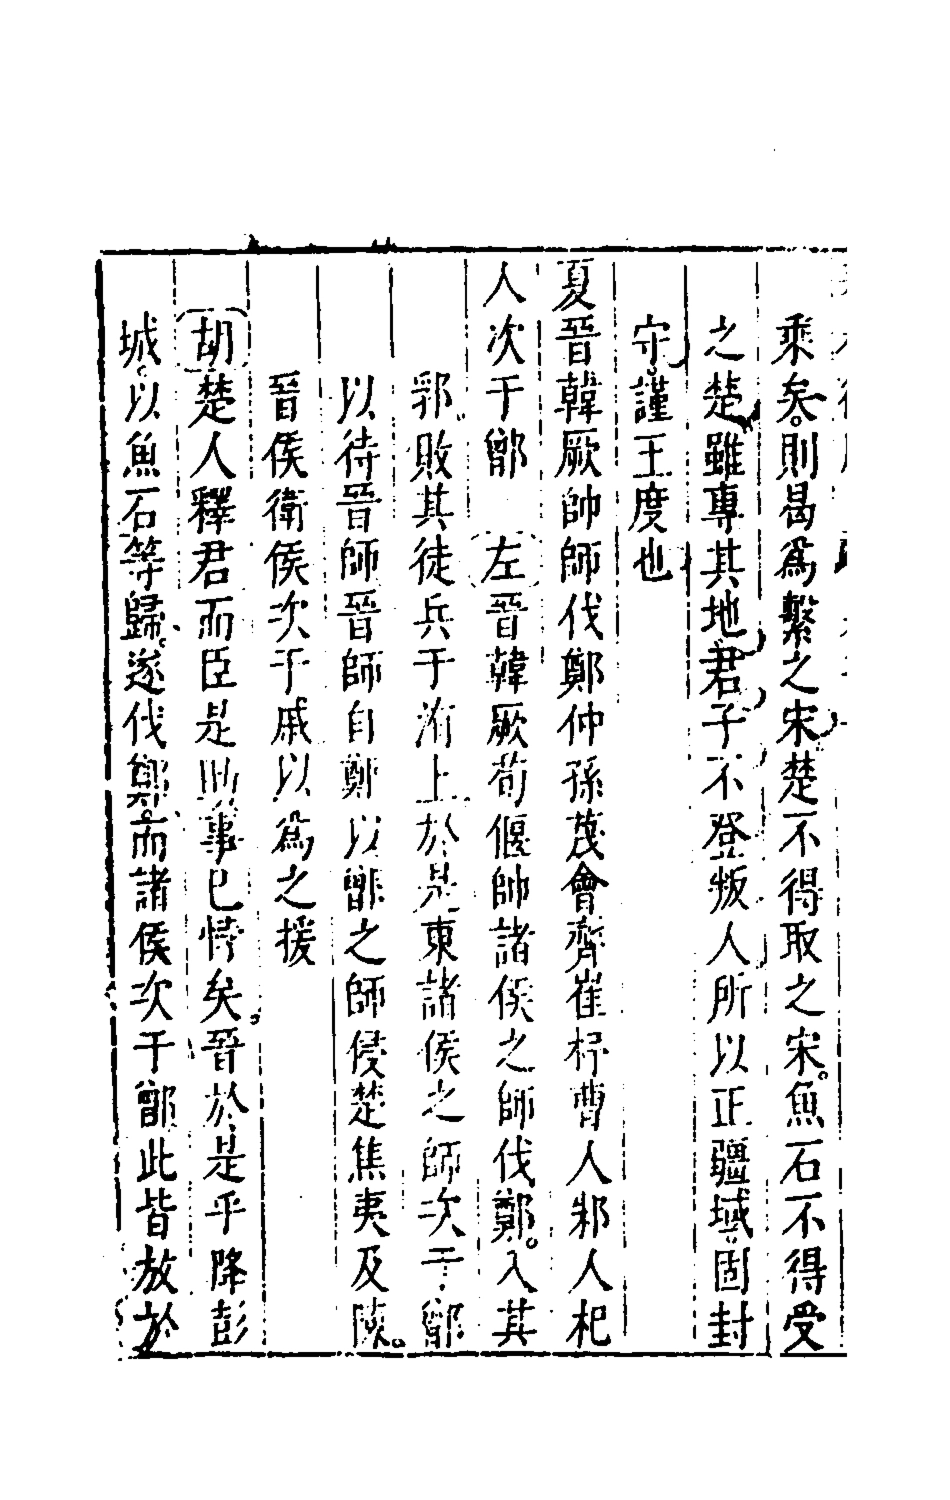 乘矣。則曷爲繫之宋楚不得取之宋。魚石不得受
之楚雖專其地君子不登叛人所以正疆域。固封
守。謹王度也
夏晉韓厥帥師伐鄭仲孫蔑會齊崔杼曹人邾人杞
人次于鄫　左晉韓厥荀偃帥諸侯之師伐鄭。入其
郛。敗其徒兵于洧上於是東諸侯之師次于鄫
以待晉師晉師自鄭以鄫之師侵楚焦夷及陳。
晉侯衛侯次于戚以爲之援
胡楚人釋君而臣是助事已悖矣。晉於是乎降彭
城。以魚石等歸。遂伐鄭。而諸侯次于鄫此皆放於